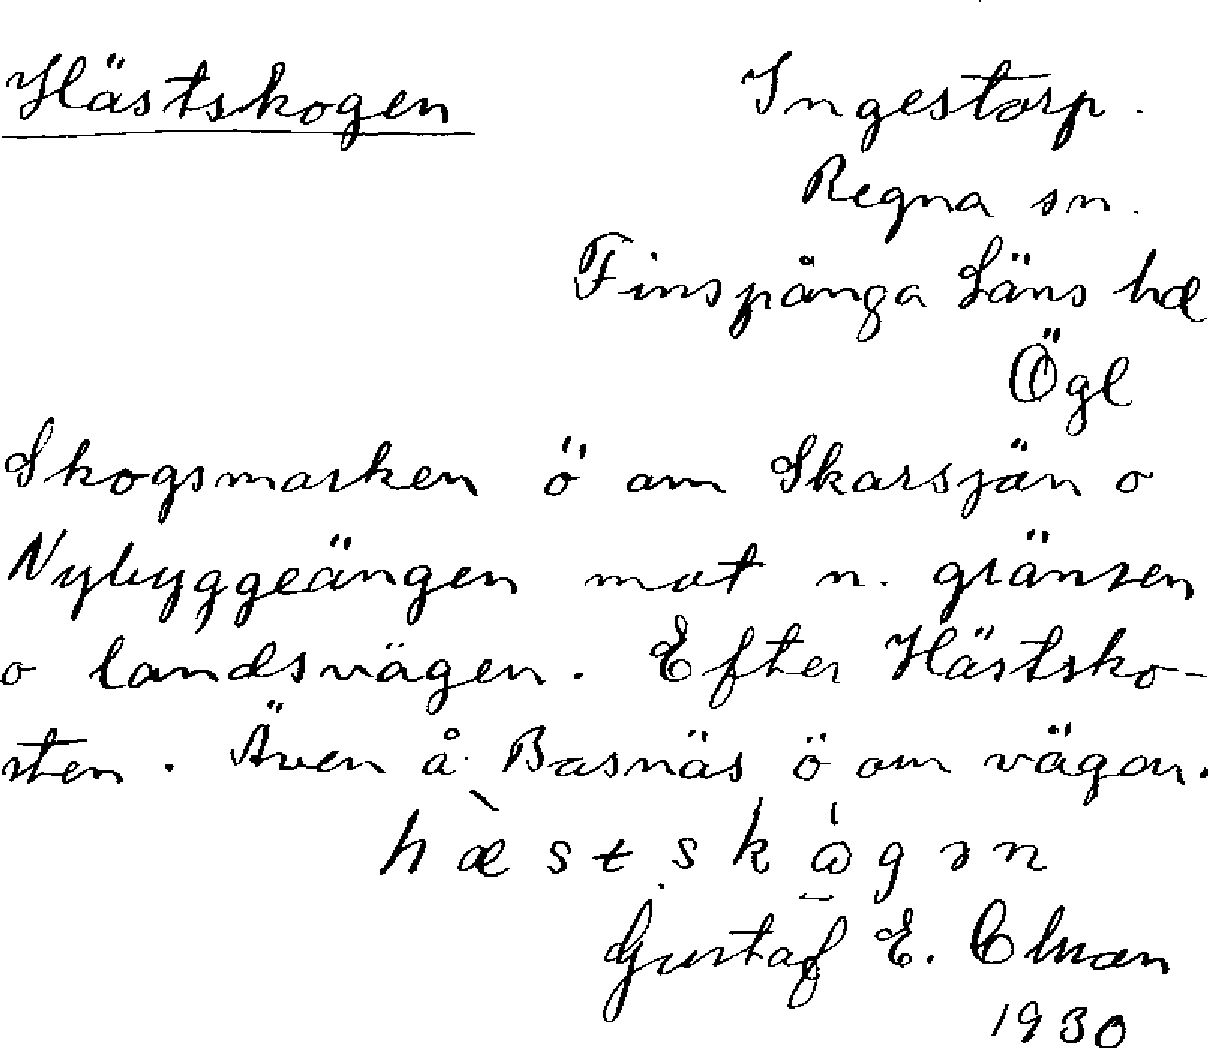 Hästskogen Ingestorp.
Regna sn.
Finspånga Läns hd
Ögl
Skogsmarken ö om Skarsjön o
Nybyggeängen mot n. gränsen
o landsvägen. Efter Hästsko-
sten. Även å Basnäs ö om vägen.
Gustaf E.
1930